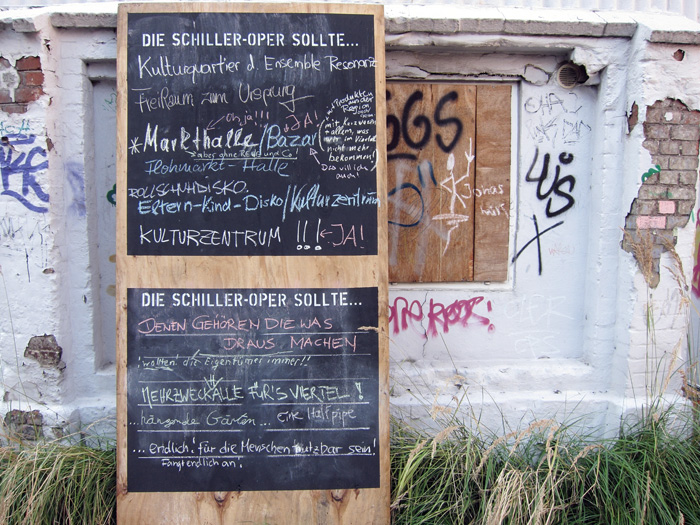 DIE SCHILLER-OPER SOLLTE...
Kulturquartier d. Ensemble Resonanz
FreiRaum zum Ursprung
oh ja!!!
JA!
*Markthalle/Bazar
aber ohne REWE und Co!
mit Produkten
aus der
Region
mit Kurzwaren
+ allem, was
im Viertel
nicht mehr
bekommen!
Das will ich
auch!
Flohmarkt-Halle
ROLLSCHUHDISKO.
Eltern-Kind-Disko/Kulturzentrum
KULTURZENTRUM !!! ←JA!
DIE SCHILLER-OPER SOLLTE...
DENEN GEHÖREN DIE WAS
DRAUS MACHEN
"wollten" die Eigentümer immer!!
MEHRZWECKHALLE FÜR'S VIERTEL!
...hängende Gärten... eine Halfpipe
...endlich! für die Menschen nutzbar sein!
Fangt endlich an!
GGS
Jonas